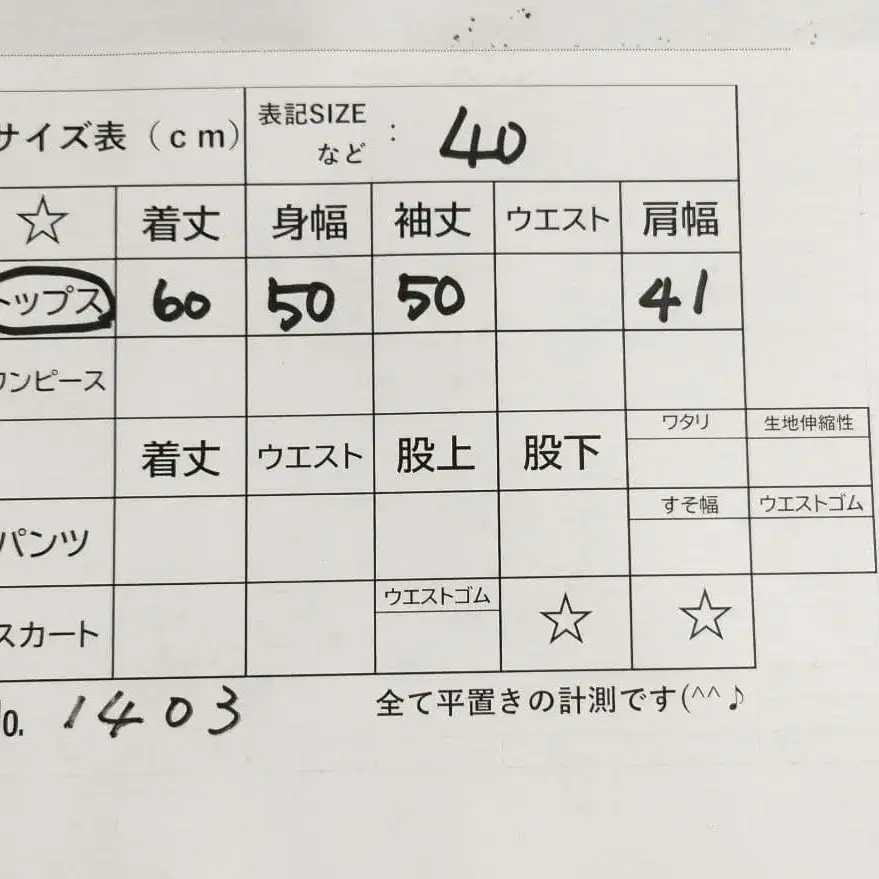 サイズ表（cm） 表記SIZEなど : 40
☆ 着丈 身幅 袖丈 ウエスト 肩幅
トップス 60 50 50 41
ワンピース
着丈 ウエスト 股上 股下 ワタリ 生地伸縮性
パンツ すそ幅 ウエストゴム
スカート ウエストゴム ☆ ☆
No. 1403 全て平置きの計測です(^^♪